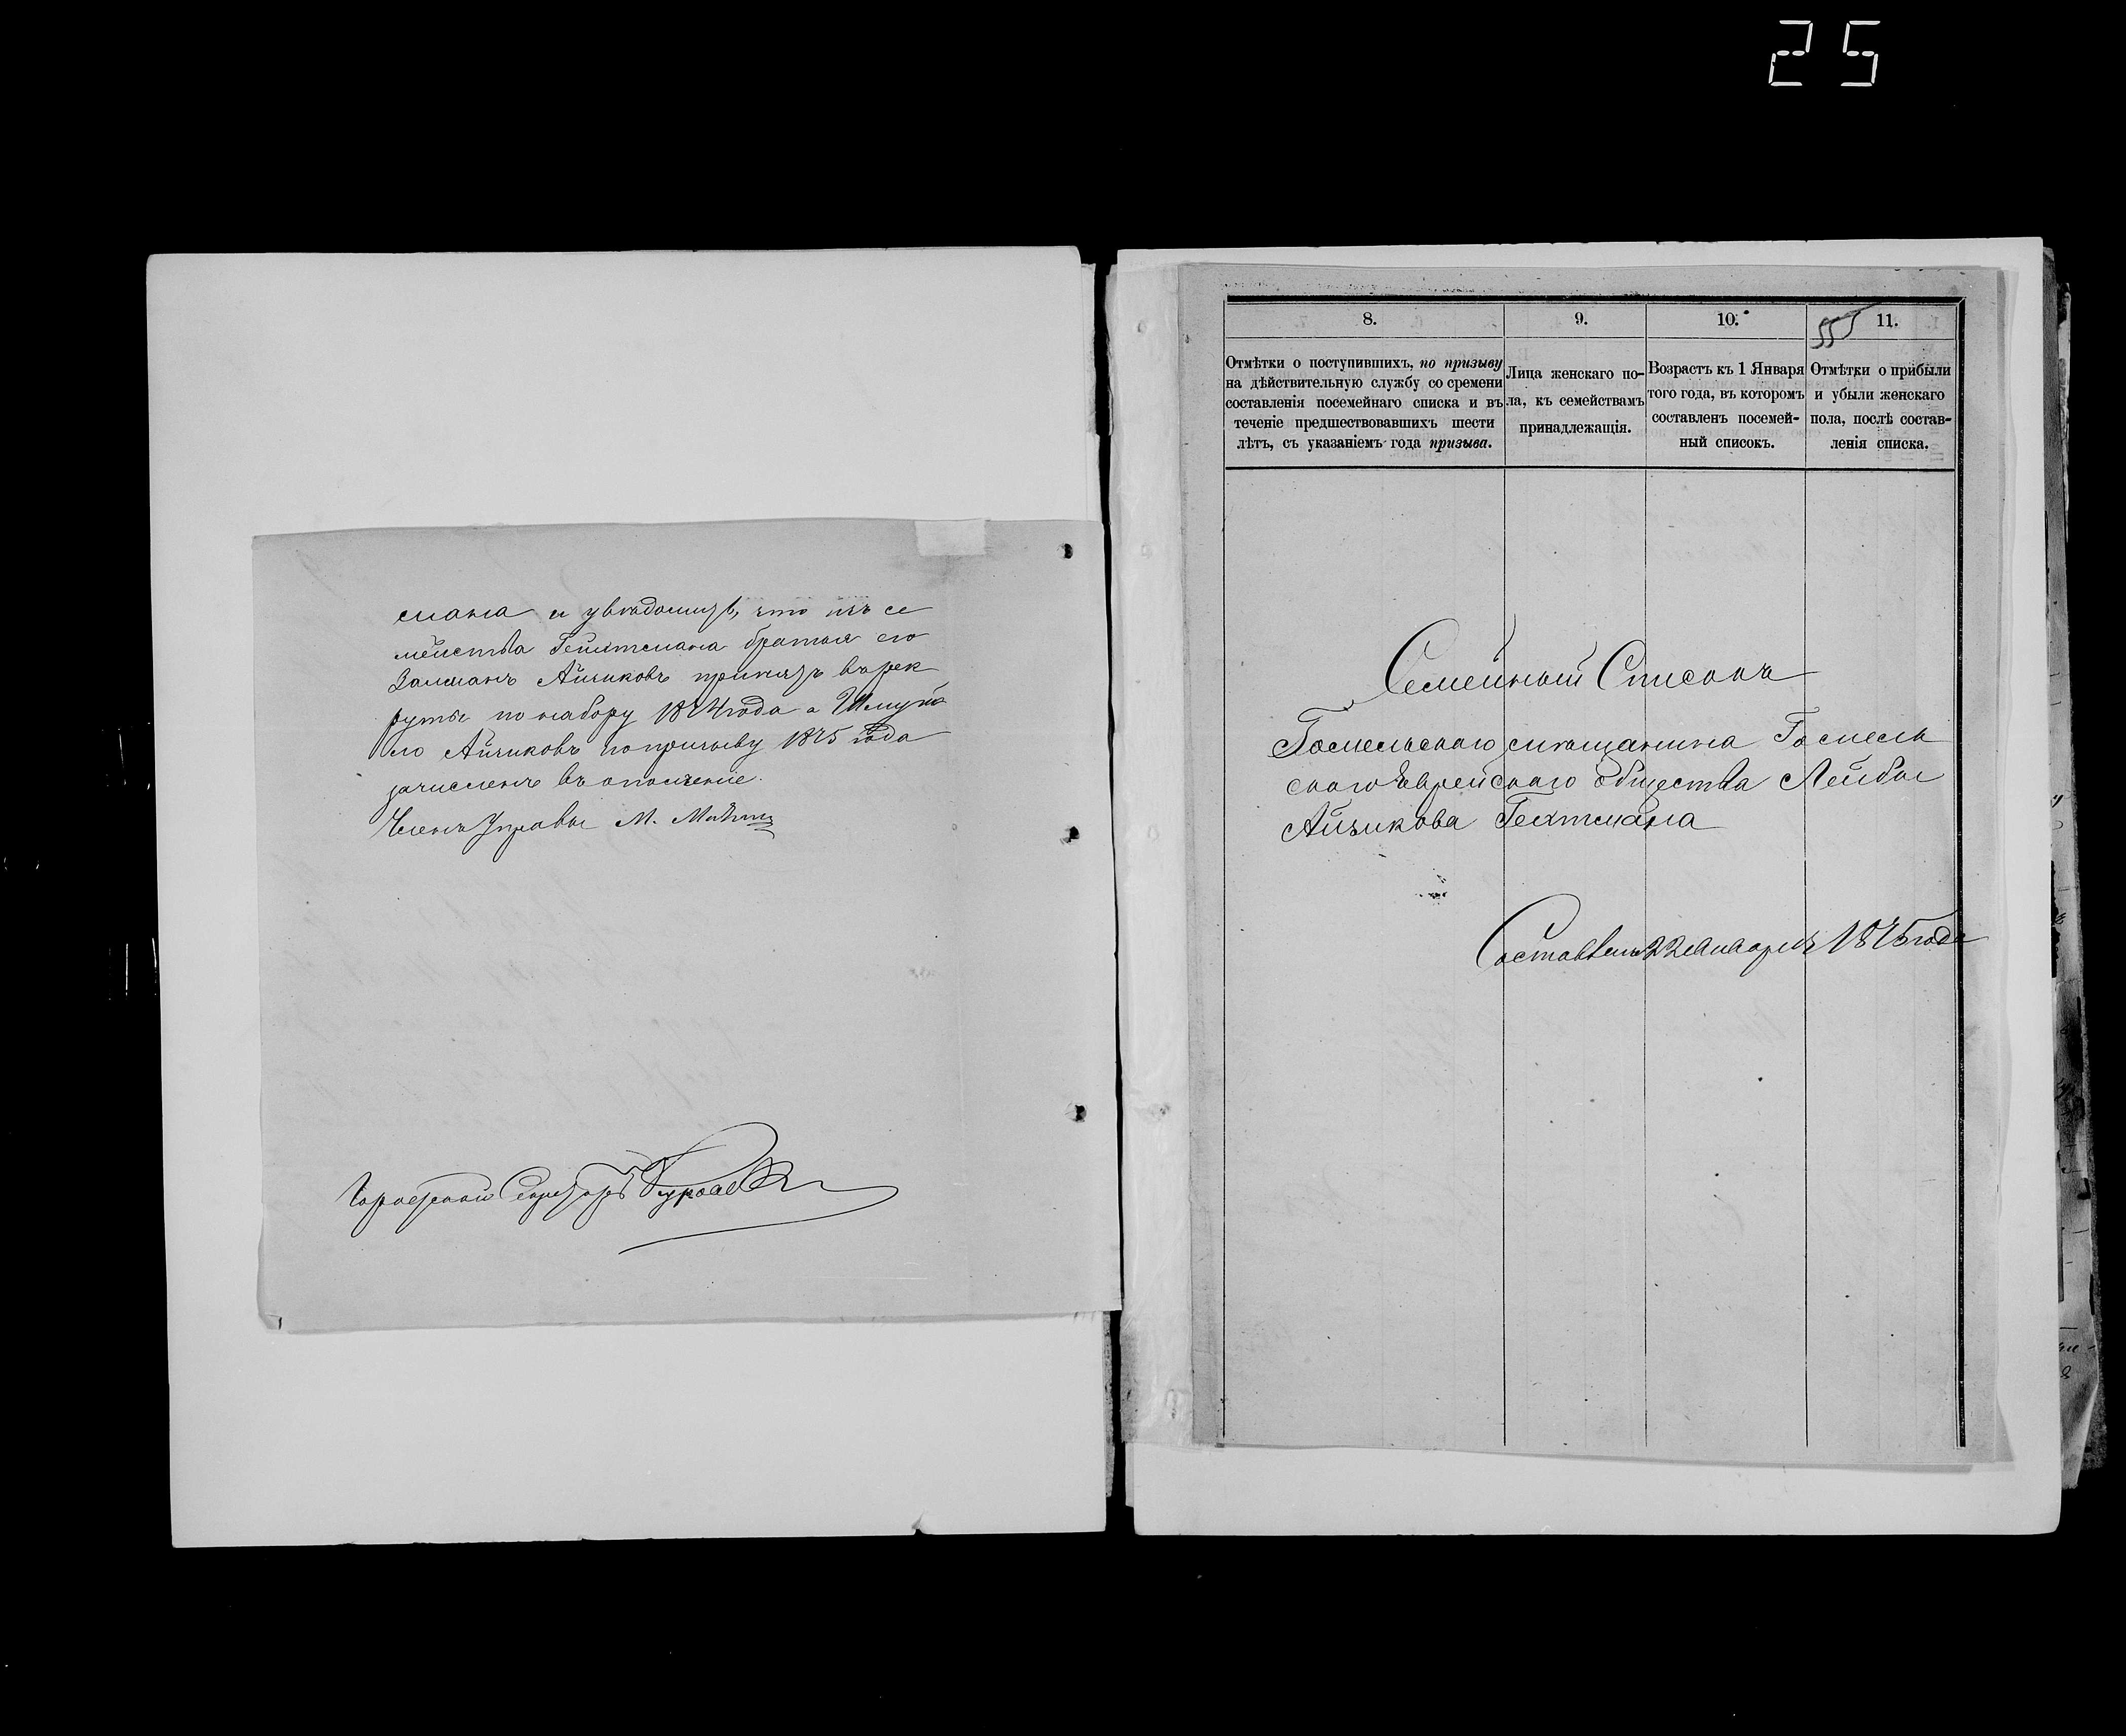 25
смана и увѣдомить, что изъ се
мейства Гейхтсмана братья его
Залманъ Айзиковъ принятъ въ рек
руты по набору 1874 года а Шмуй
ло Айзиковъ по призыву 1875 года
зачисленъ въ ополченіе.
Членъ Управы М.
Городской Секретарь
8.
9.
10.
11.
555
Отмѣтки о поступившихъ, по призыву
на дѣйствительную службу со сремени
составленія посемейнаго списка и въ
теченіе предшествовавшихъ шести
лѣтъ, съ указаніемъ года призыва.
Лица женскаго по-
ла, къ семействамъ
принадлежащія.
Возрастъ къ 1 Января
того года, въ которомъ
составленъ посемей-
ный списокъ.
Отмѣтки о прибыли
и убыли женскаго
пола, послѣ состав-
ленія списка.
Семейный Списокъ
Гомельскаго мѣщанина Гомель
скаго Еврейскаго Общества Лейбы
Айзикова Гехтмана
Составленъ 22 Января 1875 года